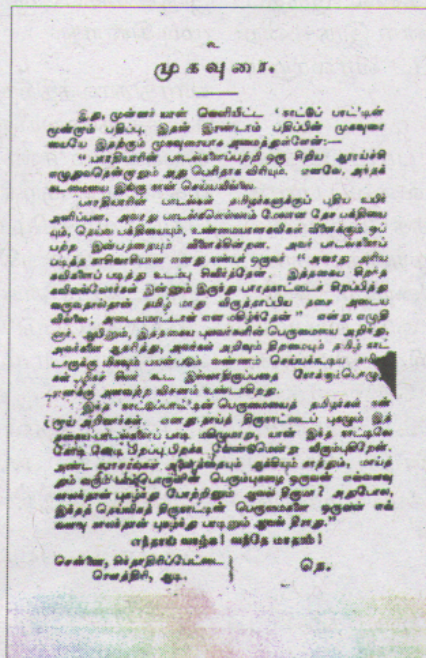 உ
முகவுரை.
இது, முன்னர் யான் வெளியிட்ட 'நாட்டுப் பாட்'டின்
மூன்றாம் பதிப்பு. இதன் இரண்டாம் பதிப்பின் முகவுரை
யையே இதற்கும் முகவுரையாக அமைத்துள்ளேன்:—
"பாரதியாரின் பாடல்களைப்பற்றி ஒரு சிறிய ஆராய்ச்சி
எழுதுவதென்றாலும் அது பெரிதாக விரியும். எனவே, அந்தக்
கடமையை இங்கு நான் செய்யவில்லை.
பாரதியாரின் பாடல்கள் தமிழர்களுக்குப் புதிய உயிர்
அளிப்பன. அவரது பாடல்களெல்லாம் மேலான தேச பக்தியை
யும், தெய்வ பக்தியையும், உண்மையான கவிகள் விளைக்கும் ஒப்
பற்ற இன்பத்தையும் விளைக்கின்றன. அவர் பாடல்களைப்
படித்த எனது நண்பர் ஒருவர் "அவரது அரிய
கவிகளைப் படித்து உடம்பு சிலிர்த்தேன். இத்தகைய சிறந்த
கவிவல்லோர்கள் இன்னும் இருந்து பாரதநாட்டைச் சிறப்பித்து
வருவதால்தான் தமிழ் மாது விருத்தாப்பிய தசை அடைய
வில்லை; அடையமாட்டாள் என மகிழ்ந்தேன்" என்று எழுதி
னார். ஆயினும், இத்தகைய புலவர்களின் பெருமையை அறிந்து,
அவர்களை ஆதரித்து, அவர்கள் அறிவும் திறமையும் தமிழ் நாட்
டாருக்கு மிகவும் பயன்படும் வண்ணம் செய்யக்கூடிய
கள் சிலர் கூட இல்லாதிருப்பதை நோக்கும்பொழு
எனக்கு அளவற்ற விசனம் உண்டாகிறது.
இந்த 'நாட்டுப்பாட்'டின் பெருமையைத் தமிழர்கள் நன்
றாய் அறிவார்கள். எனது தாய்த் திருநாட்டைப் புகழும் இத்
தகைய பாடல்களைப் பாடி மகிழுமாறு, யான் இந்த நாட்டிலே
கோடி கோடி பிறப்புப் பிறக்க வேண்டுமென்று விரும்புகிறேன்.
அண்ட சராசரங்கள் அனைத்தையும் ஆக்கியும் காத்தும், மாய்த்
தும் வரும் பரம்பொருளின் பெரும்புகழை ஒருவன் எவ்வளவு
காலந்தான் புகழ்ந்து போற்றினும் ஆவல் தீருமா? அதுபோல,
இந்தத் தெய்விகத் திருநாட்டின் பெருமைகளை ஒருவன் எவ்
வளவு காலந்தான் புகழ்ந்து பாடினும் ஆவல் தீராது."
எந்தாய் வாழ்க! வந்தே மாதரம்!
சென்னை, சிந்தாதிரிப்பேட்டை
ரௌத்திரி, ஆடி.
நெ.